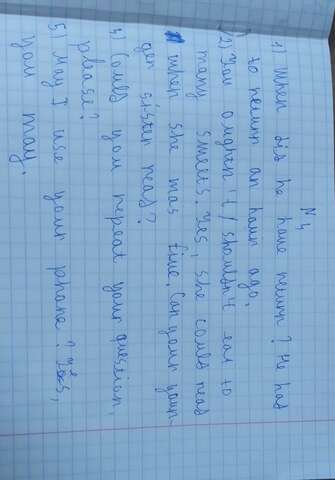 N 4
1) When did he have return? He had
to return an hour ago.
2) You oughtn't / shouldn't eat to
many sweets. Yes, she could read
when she was five. Can your youn-
ger sister read?
4 Could you repeat your question,
please?
5) May I use your phone? Yes,
you may.